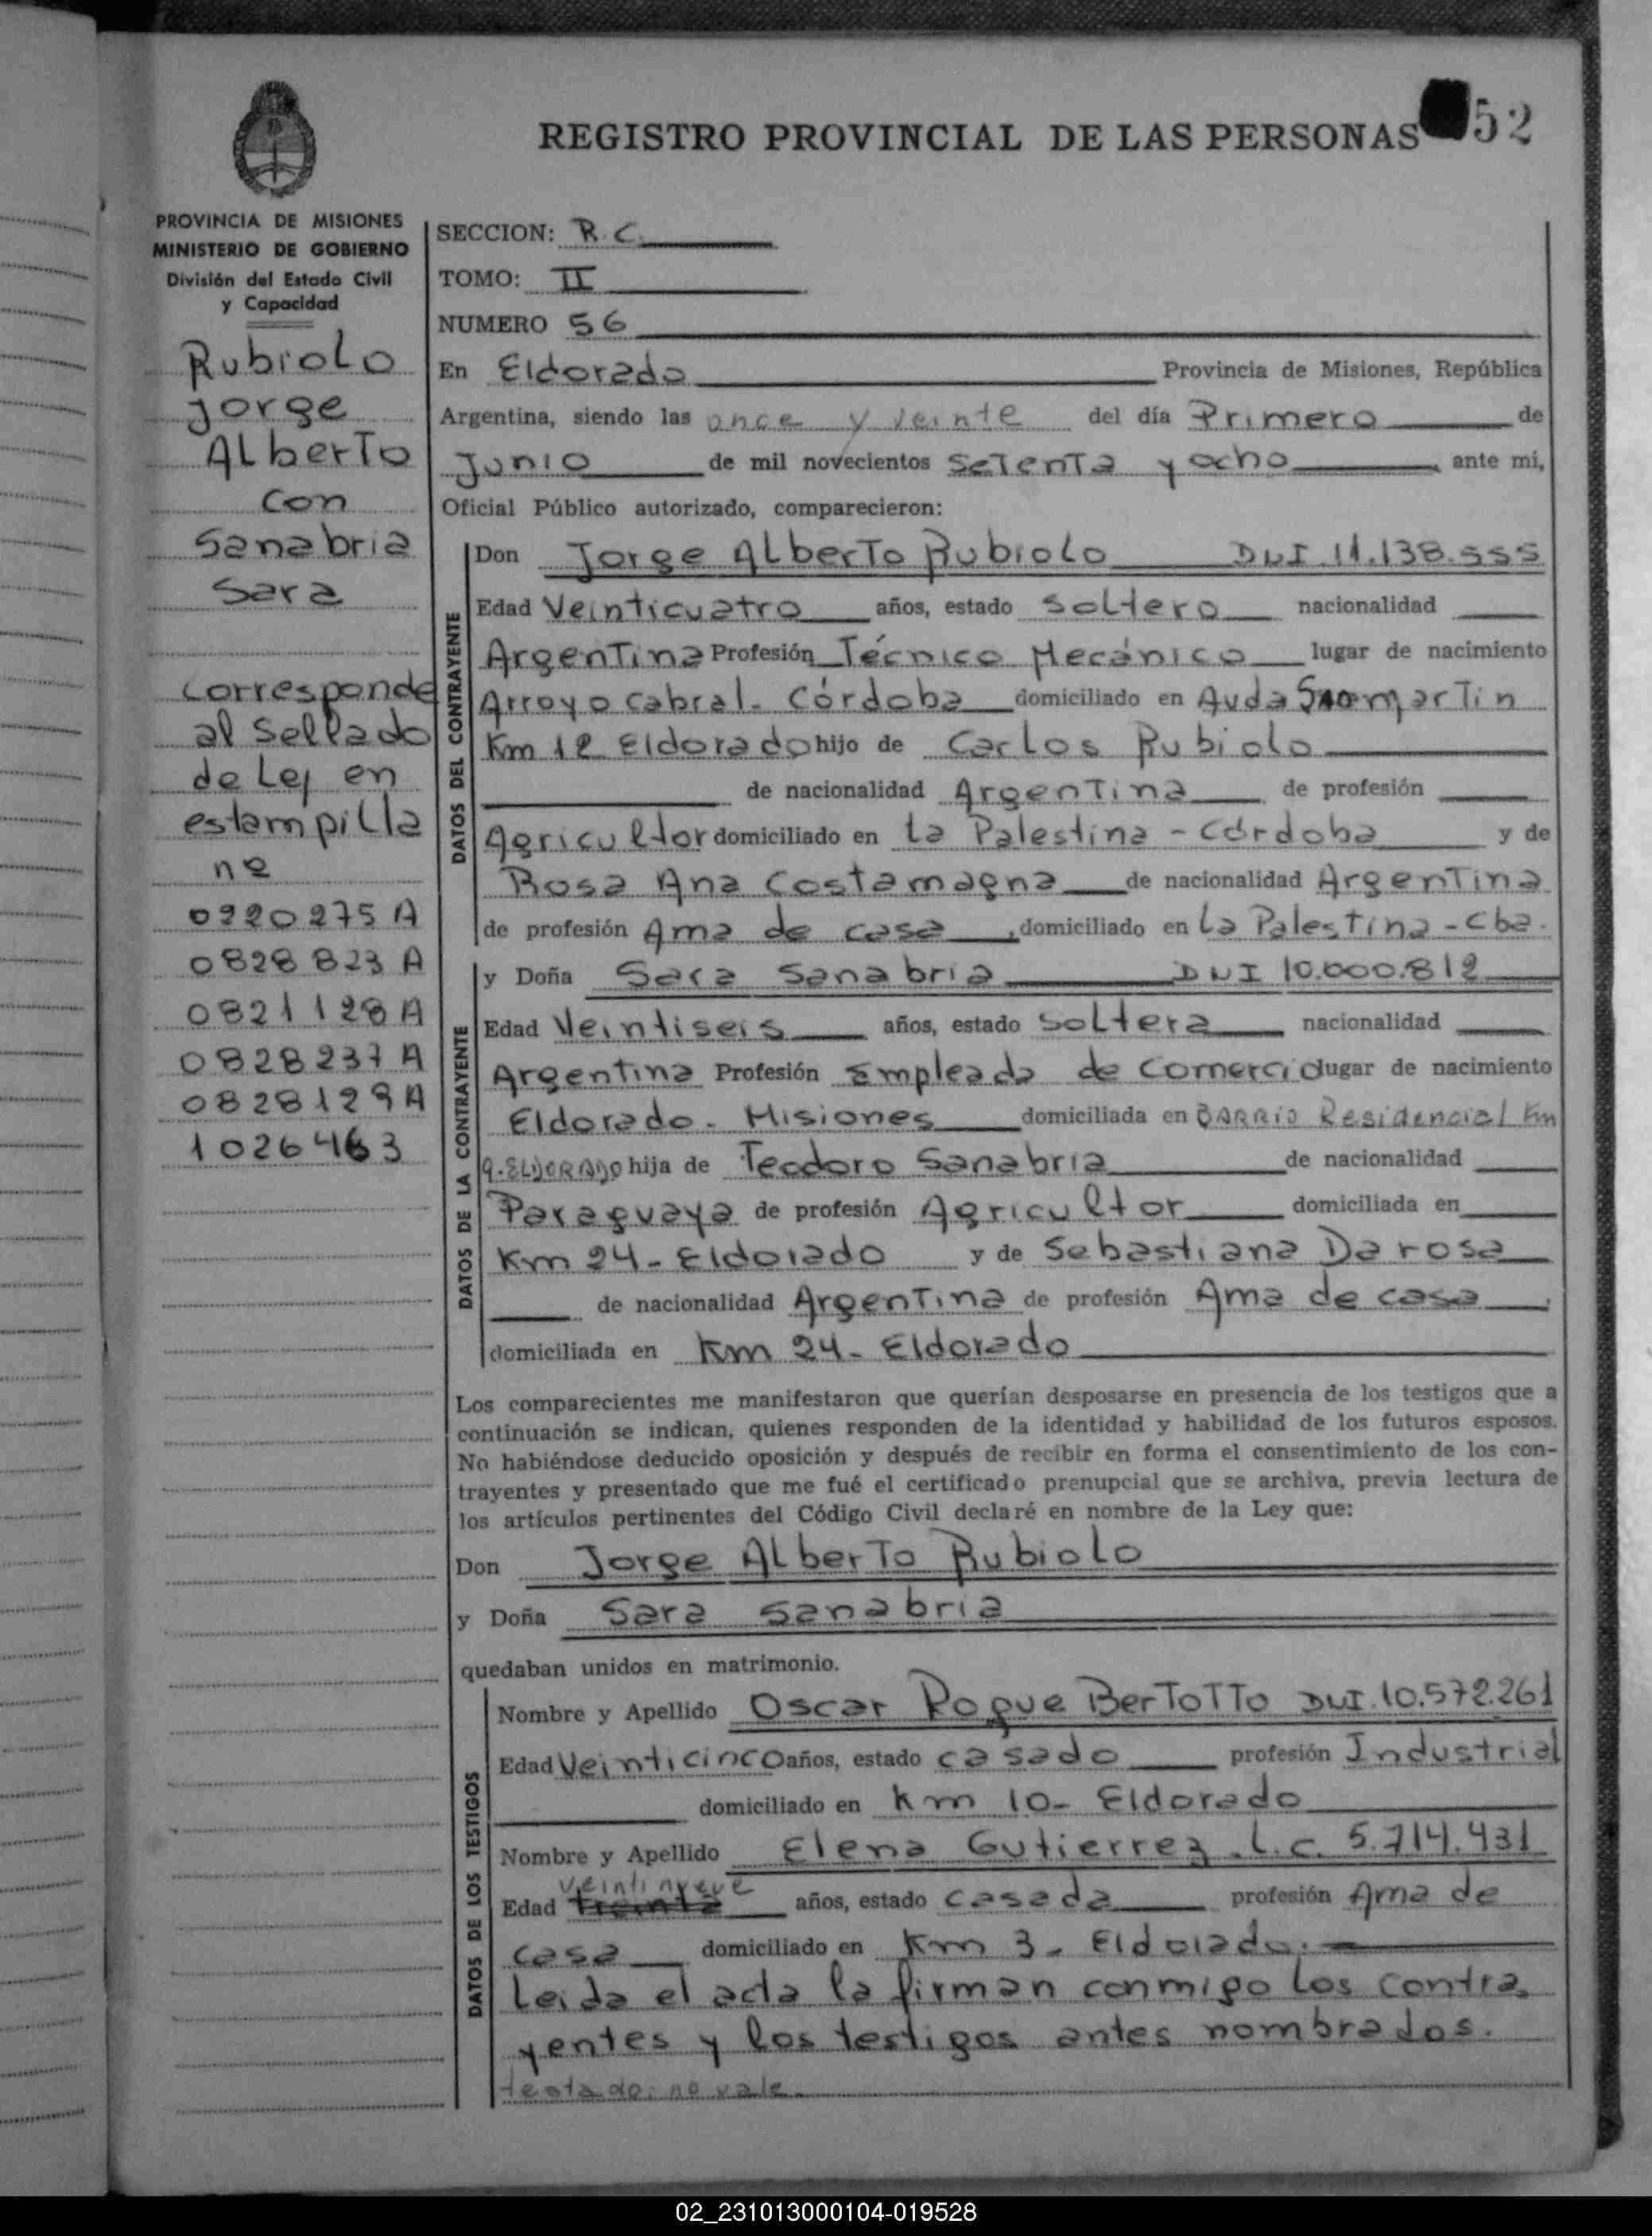 REGISTRO PROVINCIAL DE LAS PERSONAS 52
PROVINCIA DE MISIONES
MINISTERIO DE GOBIERNO
División del Estado Civil
y Capacidad
Rubiolo
Jorge
Alberto
con
Sanabria
Sara
corresponde
al Sellado
de Ley en
estampilla
nº
0220275 A
0828823 A
0821128 A
0828237 A
0828129 A
1026463
SECCION: R.C.
TOMO: II
NUMERO 56
En Eldorado Provincia de Misiones, República
Argentina, siendo las once y veinte del día Primero de
Junio de mil novecientos setenta y ocho, ante mi,
Oficial Público autorizado, comparecieron:
DATOS DEL CONTRAYENTE
Don Jorge Alberto Rubiolo DNI 11.138.555
Edad Veinticuatro años, estado soltero nacionalidad
Argentina Profesión Técnico Mecánico lugar de nacimiento
Arroyo Cabral. Córdoba domiciliado en Avda martin
Km 12 Eldorado hijo de Carlos Rubiolo
de nacionalidad Argentina de profesión
Agricultor domiciliado en La Palestina - Córdoba y de
Rosa Ana Costamagna de nacionalidad Argentina
de profesión Ama de casa, domiciliado en La Palestina - Cba.
DATOS DE LA CONTRAYENTE
y Doña Sara Sanabria DNI 10.000.812
Edad Veintiseis años, estado soltera nacionalidad
Argentina Profesión Empleada de Comercio lugar de nacimiento
Eldorado. Misiones domiciliada en BARRIO Residencial Km
9-ELDORADO hija de Teodoro Sanabria de nacionalidad
Paraguaya de profesión Agricultor domiciliada en
Km 24 - Eldorado y de Sebastiana Da rosa
de nacionalidad Argentina de profesión Ama de casa
domiciliada en Km 24 - Eldorado
Los comparecientes me manifestaron que querían desposarse en presencia de los testigos que a
continuación se indican, quienes responden de la identidad y habilidad de los futuros esposos.
No habiéndose deducido oposición y después de recibir en forma el consentimiento de los con-
trayentes y presentado que me fué el certificado prenupcial que se archiva, previa lectura de
los artículos pertinentes del Código Civil declaré en nombre de la Ley que:
Don Jorge Alberto Rubiolo
y Doña Sara Sanabria
quedaban unidos en matrimonio.
DATOS DE LOS TESTIGOS
Nombre y Apellido Oscar Roque Bertotto DNI.10.572.261
Edad Veinticinco años, estado casado profesión Industrial
domiciliado en Km 10- Eldorado
Nombre y Apellido Elena Gutierrez L.c. 5.714.431
veintinueve
Edad treinta años, estado casada profesión Ama de
casa domiciliado en Km 3 - Eldorado.
Leida el acta la firman conmigo los contra
yentes y los testigos antes nombrados.
testado: no vale.
02_231013000104-019528